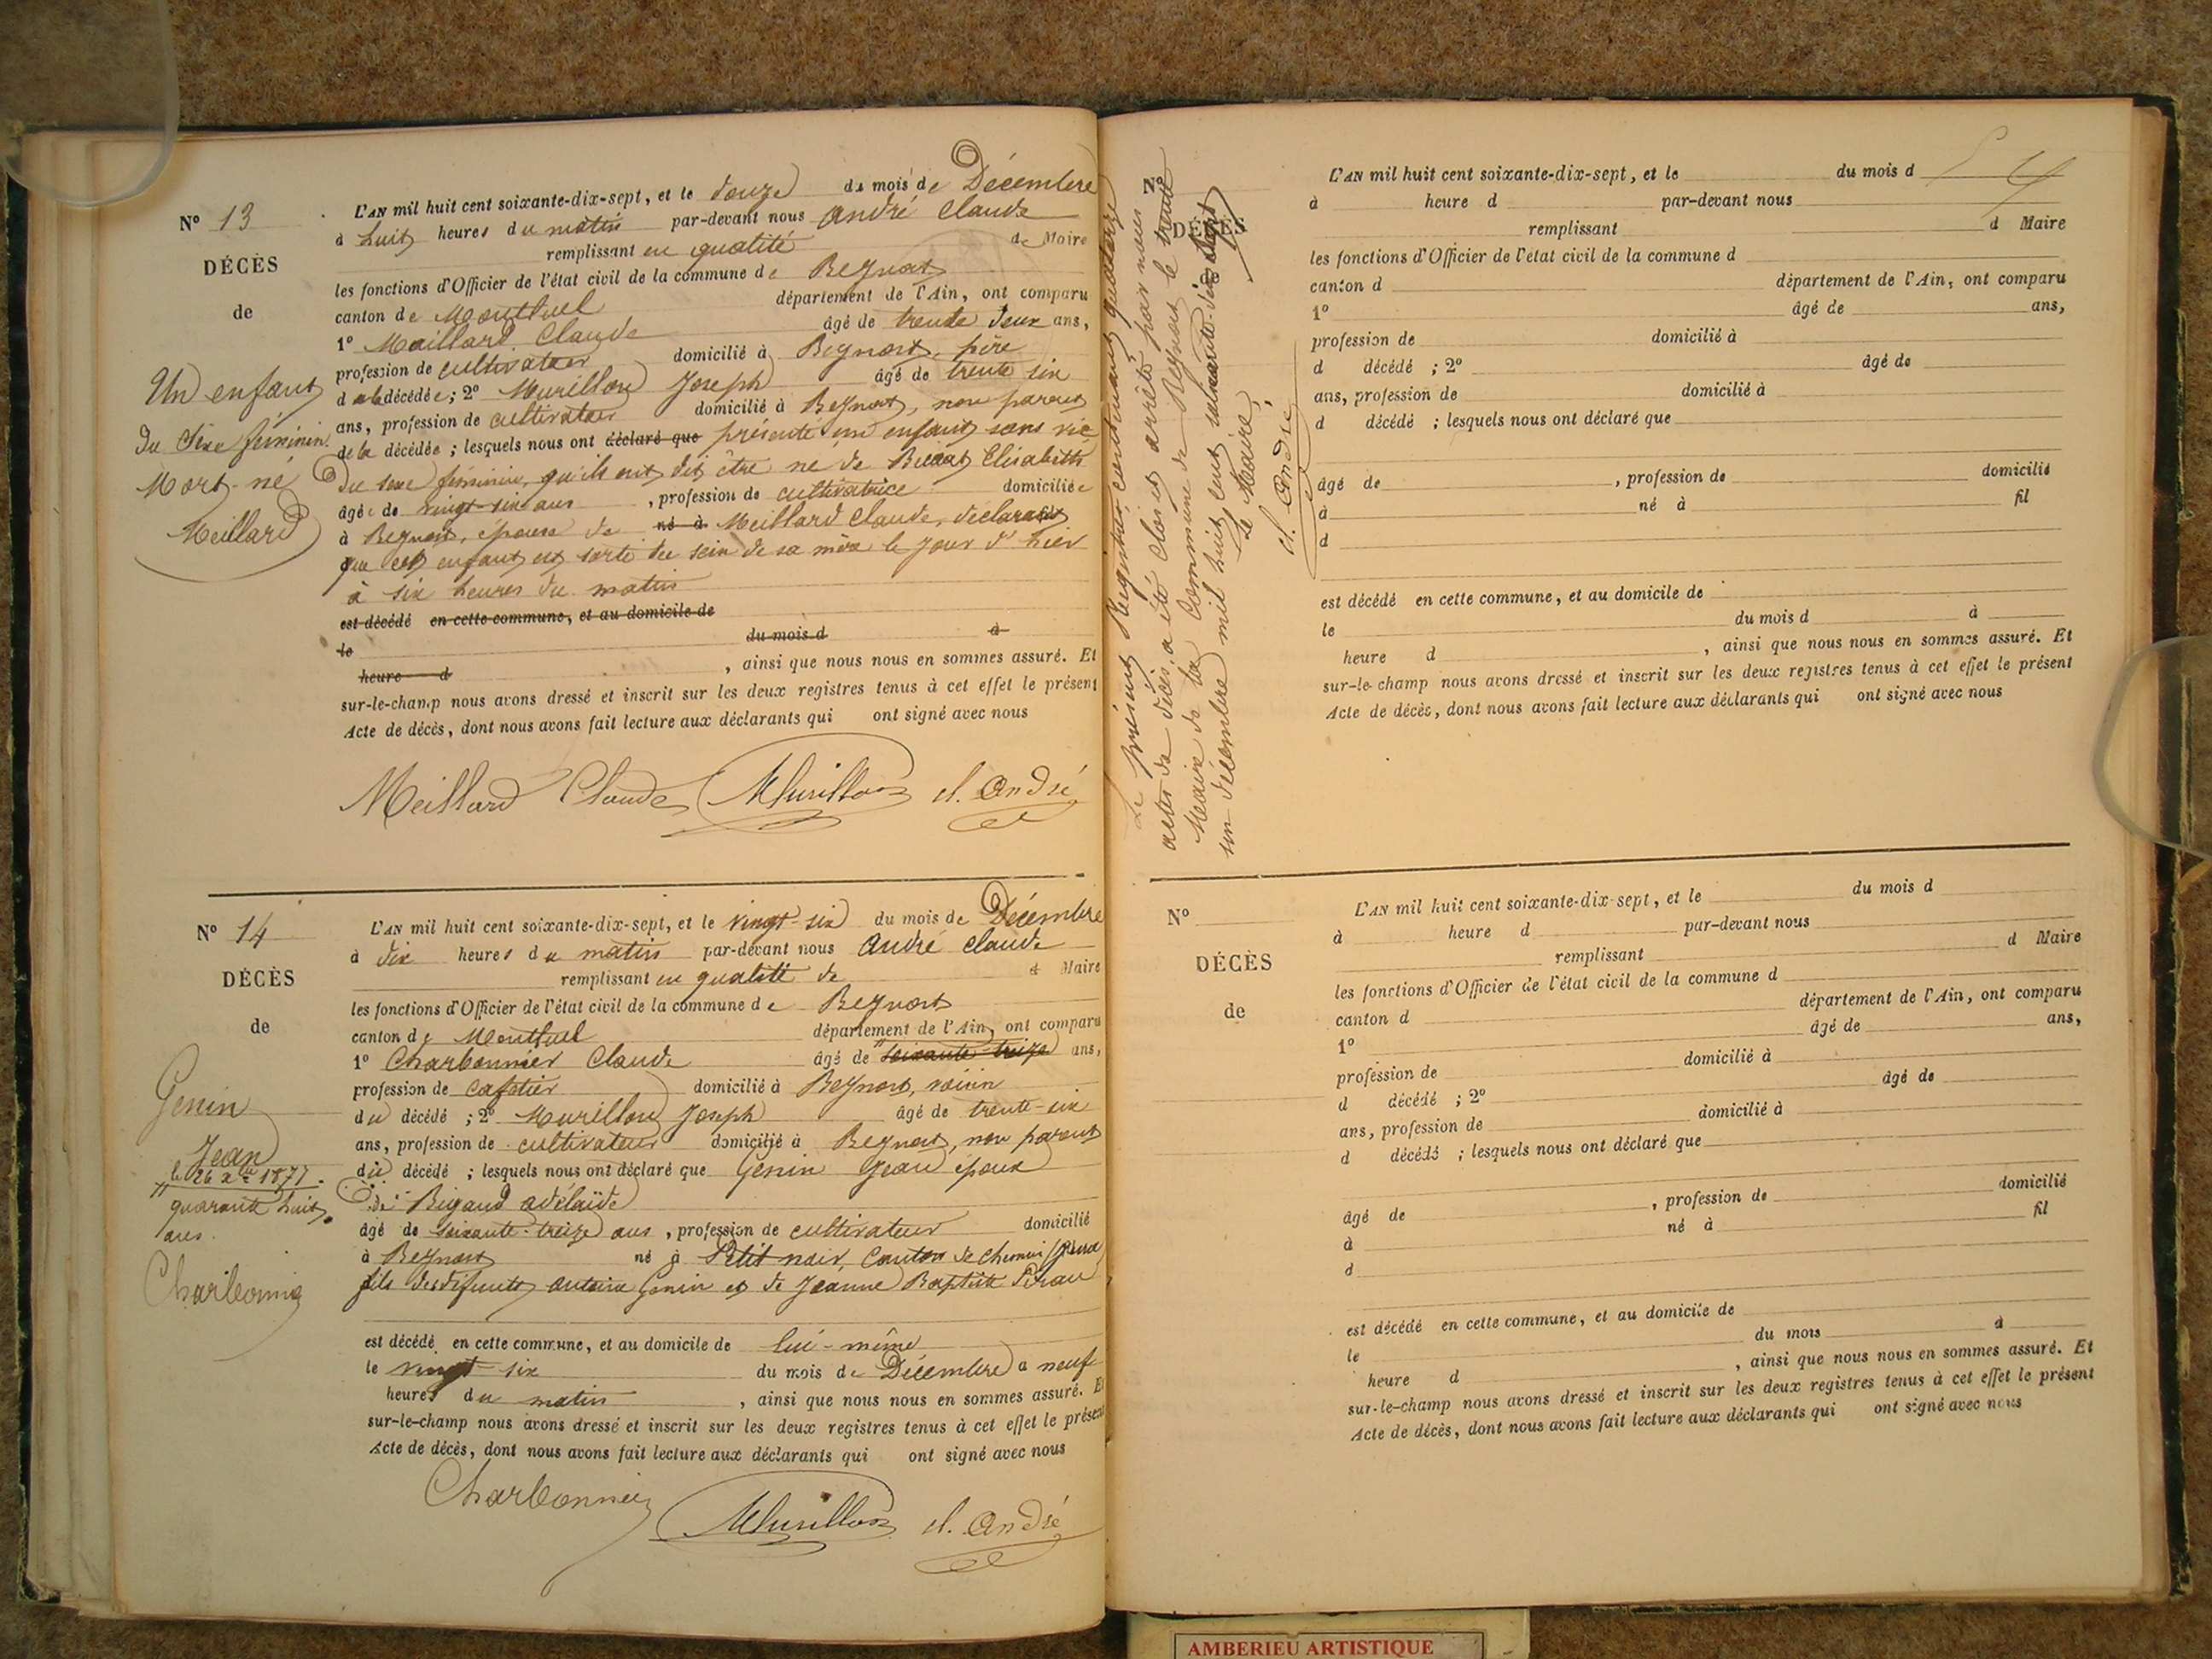 N° 13
DÉCÈS
de
Un enfant
du sexe féminin
Mort-né
Meillard
L'AN mil huit cent soixante-dix-sept, et le douze du mois de Décembre
à huit heures du matin par-devant nous André Claude
remplissant en qualité de Maire
les fonctions d'Officier de l'état civil de la commune de Beynost
canton de Montluel département de l'Ain, ont comparu
1° Meillard Claude âgé de trente deux ans,
profession de cultivateur domicilié à Beynost, père
de la décédée; 2° Murillon Joseph âgé de trente six
ans, profession de cultivateur domicilié à Beynost, non parent
de la décédée; lesquels nous ont déclaré que présenté un enfant sans vie
du sexe féminin, qu'ils ont dit être né de Elisabeth
âgée de vingt-six ans, profession de cultivatrice domiciliée
à Beynost, épouse de né à Meillard Claude, déclarant
que cet enfant est sorti du sein de sa mère le jour d'hier
à six heures du matin
est décédé en cette commune, et au domicile de
le du mois d à
heure d , ainsi que nous nous en sommes assuré. Et
sur-le-champ nous avons dressé et inscrit sur les deux registres tenus à cet effet le présent
Acte de décès, dont nous avons fait lecture aux déclarants qui ont signé avec nous
Meillard Claude Murillon cl. André
N° 14
DÉCÈS
de
Genin
Jean
le 26 Xbre 1877.
quarante huit
ans.
Charbonnier
L'AN mil huit cent soixante-dix-sept, et le vingt-six du mois de Décembre
à dix heures du matin par-devant nous André Claude
remplissant en qualité de d Maire
les fonctions d'Officier de l'état civil de la commune de Beynost
canton de Montluel département de l'Ain, ont comparu
1° Charbonnier Claude âgé de soixante-treize ans,
profession de cafetier domicilié à Beynost, voisin
du décédé; 2° Murillon Joseph âgé de trente-six
ans, profession de cultivateur domicilié à Beynost, non parent
du décédé; lesquels nous ont déclaré que Genin Jean époux
de Bigaud Adélaïde
âgé de soixante-treize ans, profession de cultivateur domicilié
à Beynost né à Petit noir, Canton de Chemin (Jura)
fils des défunts Antoine Genin et de Jeanne Baptiste
est décédé en cette commune, et au domicile de lui-même
le vingt-six du mois de Décembre à neuf
heures du matin, ainsi que nous nous en sommes assuré. Et
sur-le-champ nous avons dressé et inscrit sur les deux registres tenus à cet effet le présent
Acte de décès, dont nous avons fait lecture aux déclarants qui ont signé avec nous
Charbonnier Murillon cl. André
Le présent Registre, contenant quatorze
actes de décès, a été clos et arrêté par nous
Maire de la Commune de Beynost le trente
un décembre mil huit cent soixante-dix sept
Le Maire,
cl. André
N°
DÉCÈS
L'AN mil huit cent soixante-dix-sept, et le du mois d
à heure d par-devant nous
remplissant d Maire
les fonctions d'Officier de l'état civil de la commune d
canton d département de l'Ain, ont comparu
1° âgé de ans,
profession de domicilié à
d décédé ; 2° âgé de
ans, profession de domicilié à
d décédé ; lesquels nous ont déclaré que
âgé de , profession de domicilié
à né à fil
d
est décédé en cette commune, et au domicile de
le du mois d à
heure d , ainsi que nous nous en sommes assuré. Et
sur-le-champ nous avons dressé et inscrit sur les deux registres tenus à cet effet le présent
Acte de décès, dont nous avons fait lecture aux déclarants qui ont signé avec nous
N°
DÉCÈS
de
L'AN mil huit cent soixante-dix-sept, et le du mois d
à heure d par-devant nous
remplissant d Maire
les fonctions d'Officier de l'état civil de la commune d
canton d département de l'Ain, ont comparu
1° âgé de ans,
profession de domicilié à
d décédé ; 2° âgé de
ans, profession de domicilié à
d décédé ; lesquels nous ont déclaré que
âgé de , profession de domicilié
à né à fil
d
est décédé en cette commune, et au domicile de
le du mois à
heure d , ainsi que nous nous en sommes assuré. Et
sur-le-champ nous avons dressé et inscrit sur les deux registres tenus à cet effet le présent
Acte de décès, dont nous avons fait lecture aux déclarants qui ont signé avec nous
AMBERIEU ARTISTIQUE